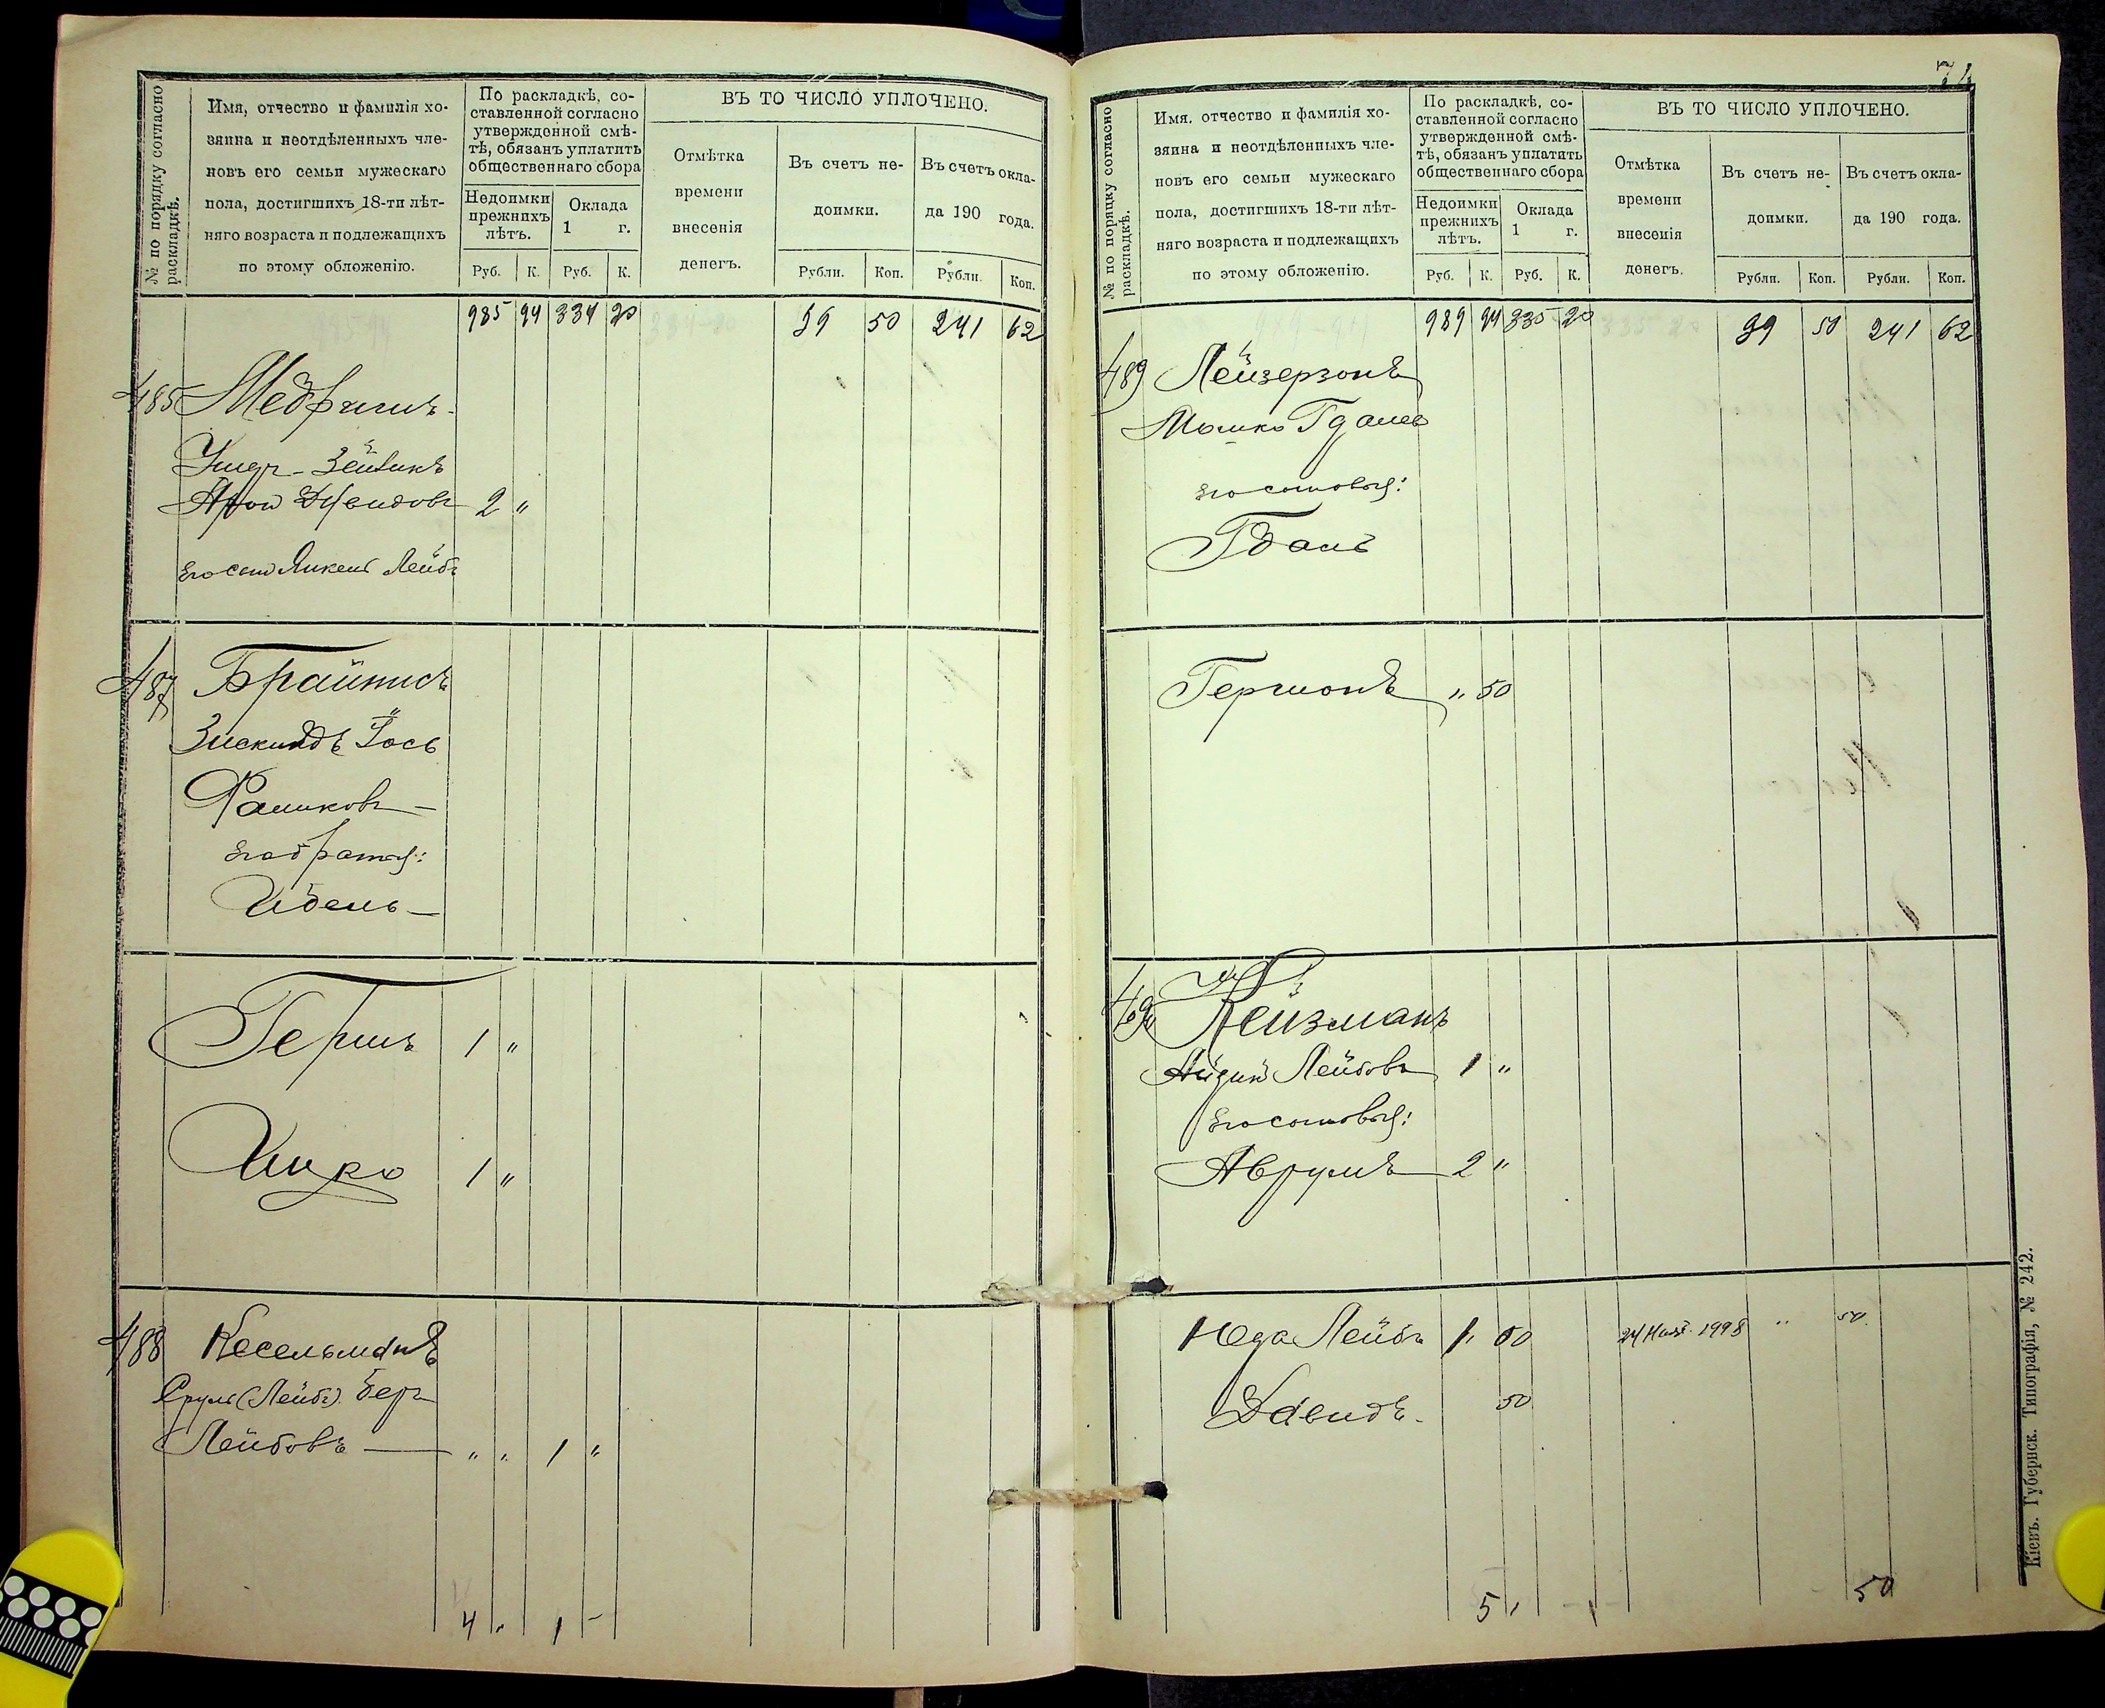 № по порядку согласно
раскладкѣ.
Имя, отчество и фамилія хо-
зяина и неотдѣленныхъ чле-
новъ его семьи мужескаго
пола, достигшихъ 18-ти лѣт-
няго возраста и подлежащихъ
по этому обложенію.
По раскладкѣ, со-
ставленной согласно
утвержденной смѣ-
тѣ, обязанъ уплатить
общественнаго сбора
Недоимки
прежнихъ
лѣтъ.
Оклада
1 г.
Руб. К. Руб. К.
ВЪ ТО ЧИСЛО УПЛОЧЕНО.
Отмѣтка
времени
внесенія
денегъ.
Въ счетъ не-
доимки.
Въ счетъ окла-
да 190 года.
Рубли. Коп. Рубли. Коп.
985 94 334 20 39 50 241 62
485
Арон
2 "
Его сынъ Лейбъ
487 Брайтисъ
Зискиндъ Іось
его братья:
Идель —
Гершъ 1 "
Ицко 1 "
488 Кесельманъ
Сруль (Лейбъ) Беръ
Лейбовъ — " " 1 "
4 " 1 -
74
№ по порядку согласно
раскладкѣ.
Имя, отчество и фамилія хо-
зяина и неотдѣленныхъ чле-
новъ его семьи мужескаго
пола, достигшихъ 18-ти лѣт-
няго возраста и подлежащихъ
по этому обложенію.
По раскладкѣ, со-
ставленной согласно
утвержденной смѣ-
тѣ, обязанъ уплатить
общественнаго сбора
Недоимки
прежнихъ
лѣтъ.
Оклада
1 г.
Руб. К. Руб. К.
ВЪ ТО ЧИСЛО УПЛОЧЕНО.
Отмѣтка
времени
внесенія
денегъ.
Въ счетъ не-
доимки.
Въ счетъ окла-
да 190 года.
Рубли. Коп. Рубли. Коп.
989 94 335 20 39 50 241 62
489 Лейзерзонъ
Мошко Гдалев
его сыновья:
Гдаль
Гершонъ " 50
490 Клейзманъ
Лейбовъ 1 "
его сыновья:
Аврумъ 2 "
Юда Лейбъ 1 50 " 50
Давидъ. 50
5 " 50
Кіевъ. Губернск. Типографія, № 242.